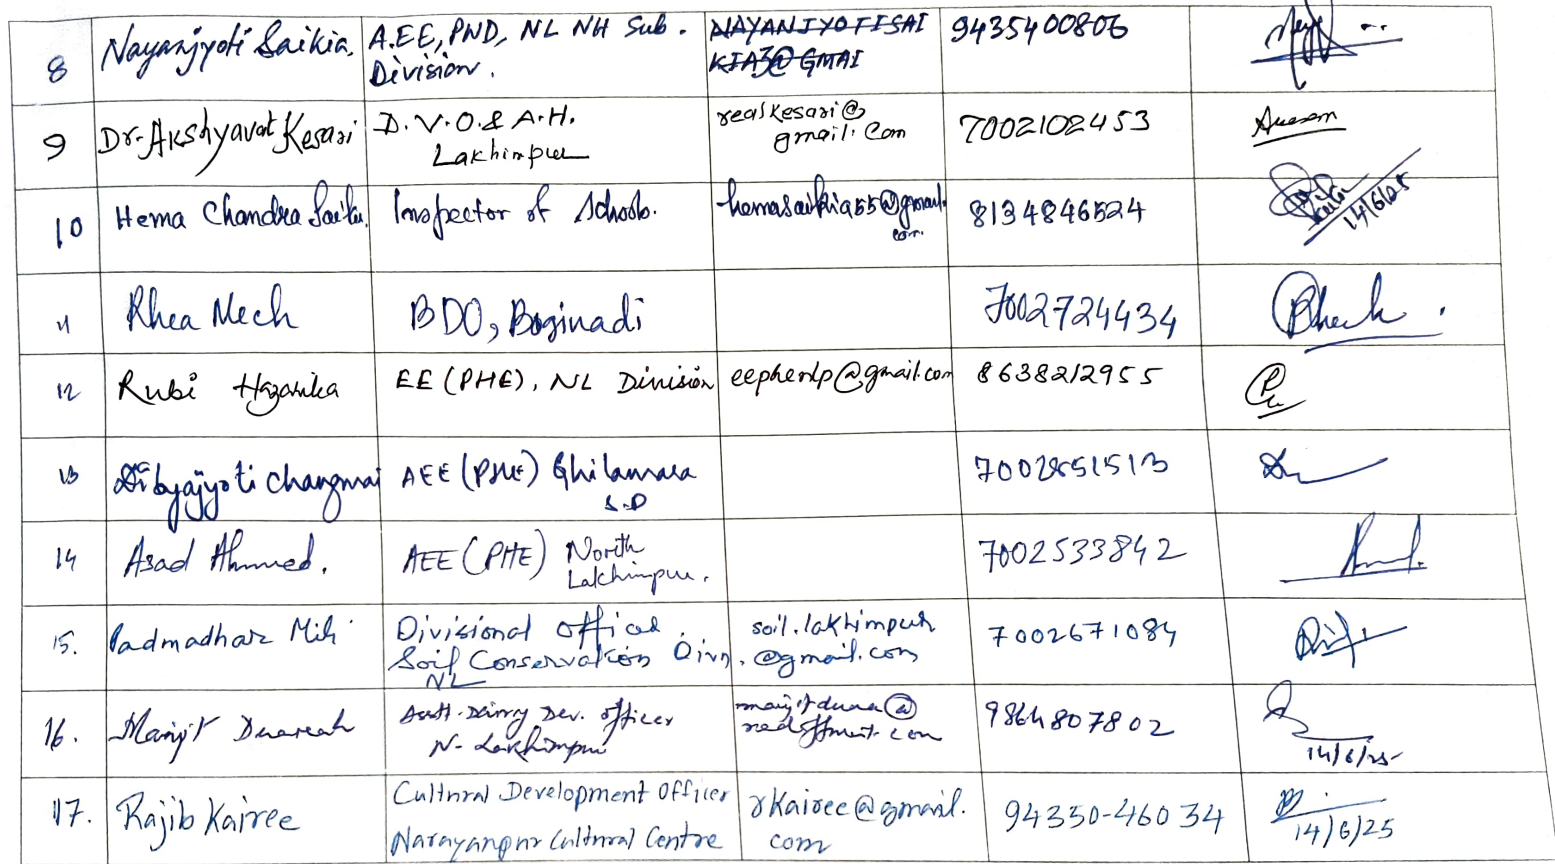 8 Nayanjyoti Saikia. A.EE, PWD, NL NH Sub. Division. NAYANJYOTISAI KIA3@GMAI 9435400806
9 Dr. Akshyavat Kesari D.V.O. & A.H. Lakhimpur realkesari@gmail.com 7002102453
10 Hema Chandra Saikia Inspector of Schools. hemasaikia55@gmail.com. 8134846524 14/6/25
11 Rhea Mech BDO, Boginadi 7002724434
12 Rubi Hazarika EE (PHE), NL Division eephenlp@gmail.com 8638212955
13 Dibyajyoti Changmai AEE (PHE) Ghilamara S.D 7002851513
14 Asad Ahmed. AEE (PHE) North Lakhimpur. 7002533842
15. Padmadhar Mili Divisional Officer Soil Conservation Divn. NL soil.lakhimpur@gmail.com 7002671084
16. Manjit Duarah Asstt. Dairy Dev. Officer N-Lakhimpur 9864807802 14/6/25
17. Rajib Kairee Cultural Development Officer Narayanpur Cultural Centre rkairee@gmail.com 94350-46034 14/6/25